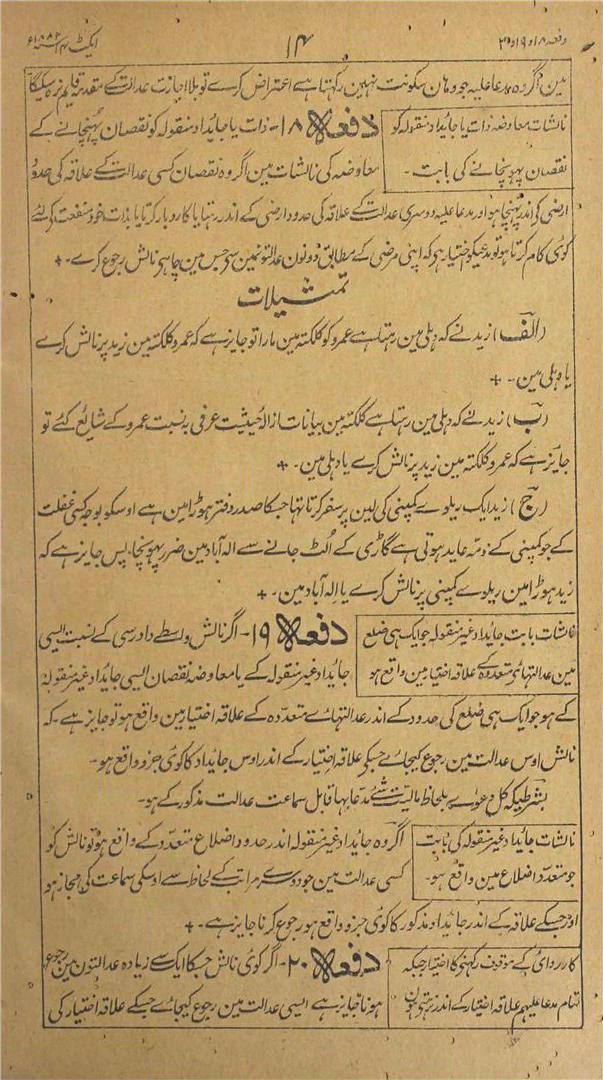 دفعہ ۱۸ و ۱۹ و ۲۰
۱۴
ایکٹ ۱۴ سنہ ۱۸۸۲ء
مین اگر وہ مدعا علیہ جو وہان سکونت نہین رکہتا ہے اعتراض کرے تو بلا اجازت عدالت کے مقدمہ قایم نرہ سکیگا
نالشات معاوضہ ذات یا جائداد منقولہ کو
نقصان پہونچانے کی بابت ۔
دفعہ ۱۸ ۔ ذات یا جائداد منقولہ کو نقصان پہنچانے کے
معاوضہ کی نالشات مین اگر وہ نقصان کسی عدالت کے علاقہ کی حدود
ارضی کی اندر پہنچا ہو اور مدعا علیہ دوسری عدالت کے علاقہ کی حدود ارضی کے اندر رہتا یا کاروبار کرتا یا بذات خود منفعت کے لئے
کوئی کام کرتا ہو تو مدعیکو اختیار ہی کہ اپنی مرضی کے مطابق دونون عدالتونمین سی جس مین چاہی نالش رجوع کرے ۔ +
تمثیلات
(الف) زید نے کہ دہلی مین رہتا ہے عمرو کو کلکتہ مین مارا تو جایز ہے کہ عمرو کلکتہ مین زید پر نالش کرے
یا دہلی مین ۔ +
(ب) زید نے کہ دہلی مین رہتا ہے کلکتہ مین بیانات ازالۂ حیثیت عرفی بہ نسبت عمرو کے شایع کئے تو
جایز ہے کہ عمرو کلکتہ مین زید پر نالش کرے یا دہلی مین ۔ +
(ج) زید ایک ریلوے کمپنی کی لین پر سفر کرتا تہا جسکا صدر دفتر ہوڑا مین ہے اوسکو بوجہ کسی غفلت
کے جو کمپنی کے ذمہ عاید ہوتی ہے گاڑی کے اُلٹ جانے سے الہ آباد مین ضرر پہونچا ۔ پس جایز ہے کہ
زید ہوڑا مین ریلوے کمپنی پر نالش کرے یا الہ آباد مین ۔ +
نالشات بابت جائداد غیر منقولہ جو ایک ہی ضلع
مین عدالتہائے متعددہ کے علاقہ اختیار مین واقع ہو
دفعہ ۱۹ ۔ اگر نالش واسطے دادرسی کے نسبت ایسی
جائداد غیر منقولہ کے یا معاوضہ نقصان ایسی جائداد غیر منقولہ
کے ہو جو ایک ہی ضلع کی حدود کے اندر عدالتہاے متعددہ کے علاقہ اختیار مین واقع ہو تو جایز ہے ۔ کہ
نالش اوس عدالت مین رجوع کیجاے جسکے علاقہ اختیار کے اندر اوس جائداد کا کوئی جزو واقع ہو ۔
بشرطیکہ کل دعوے بلحاظ مالیت شئے مدعا بہا قابل سماعت عدالت مذکور کے ہو ۔
نالشات جائداد غیر منقولہ کی بابت
جو متعدد اضلاع مین واقع ہو ۔
اگر وہ جائداد غیر منقولہ اندر حدود اضلاع متعدد کے واقع ہو تو نالش کو
کسی عدالت مین جو دوسرے مراتب کے لحاظ سے اوسکی سماعت کی مجاز ہو
اور جسکے علاقہ کے اندر جائداد مذکور کا کوئی جزو واقع ہو رجوع کرنا جایز ہے ۔ +
کارروائی کے موقوف رکہنے کا اختیار جبکہ
تمام مدعا علیہم علاقہ اختیار کے اندر نرہتے ہون
دفعہ ۲۰ ۔ اگر کوئی نالش جسکا ایک سے زیادہ عدالتون مین رجوع
ہونا جایز ہے ایسی عدالت مین رجوع کیجاے جسکے علاقہ اختیار کی